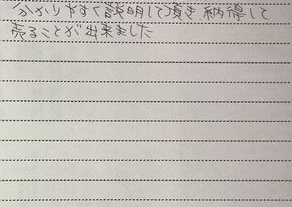 分かりやすく説明して頂き納得して
売ることが出来ました